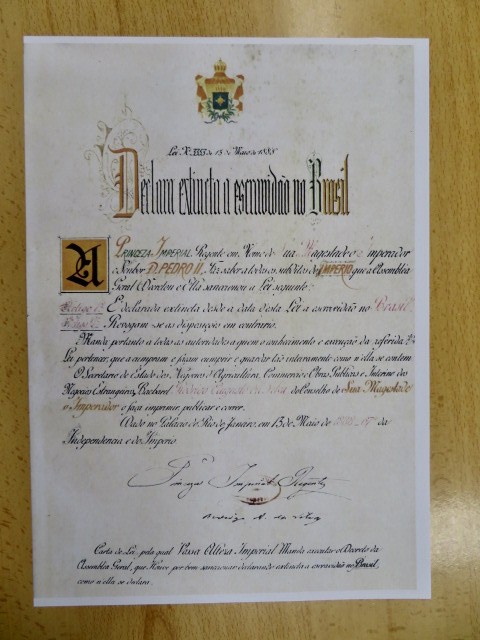 Lei N. 3353 de 13 de Maio de 1888.
Declara extincta a escravidão no Brasil
A PRINCEZA IMPERIAL Regente em Nome de Sua Magestade o Imperador
o Senhor D. PEDRO II, Faz saber a todos os subditos do IMPERIO que a Assembléa
Geral Decretou e Ella sanccionou a Lei seguinte:
Artigo 1º É declarada extincta desde a data d'esta Lei a escravidão no Brasil.
Artigo 2º Revogam-se as disposições em contrario.
Manda portanto a todas as autoridades a quem o conhecimento e execução da referida
Lei pertencer, que a cumpram e façam cumprir e guardar tão inteiramente como n'ella se contem
O Secretario de Estado dos Negocios d'Agricultura, Commercio e Obras Publicas e Interino dos
Negocios Estrangeiros, Bacharel Rodrigo Augusto da Silva do Conselho de Sua Magestade
o Imperador o faça imprimir, publicar e correr.
Dado no Palacio do Rio de Janeiro, em 13 de Maio de 1888, 67º da
Independencia e do Imperio
Princeza Imperial Regente
Rodrigo A. da Silva
Carta de Lei, pela qual Vossa Alteza Imperial Manda executar o Decreto da
Assembléa Geral, que Houve por bem sanccionar declarando extincta a escravidão no Brasil,
como n'ella se declara.